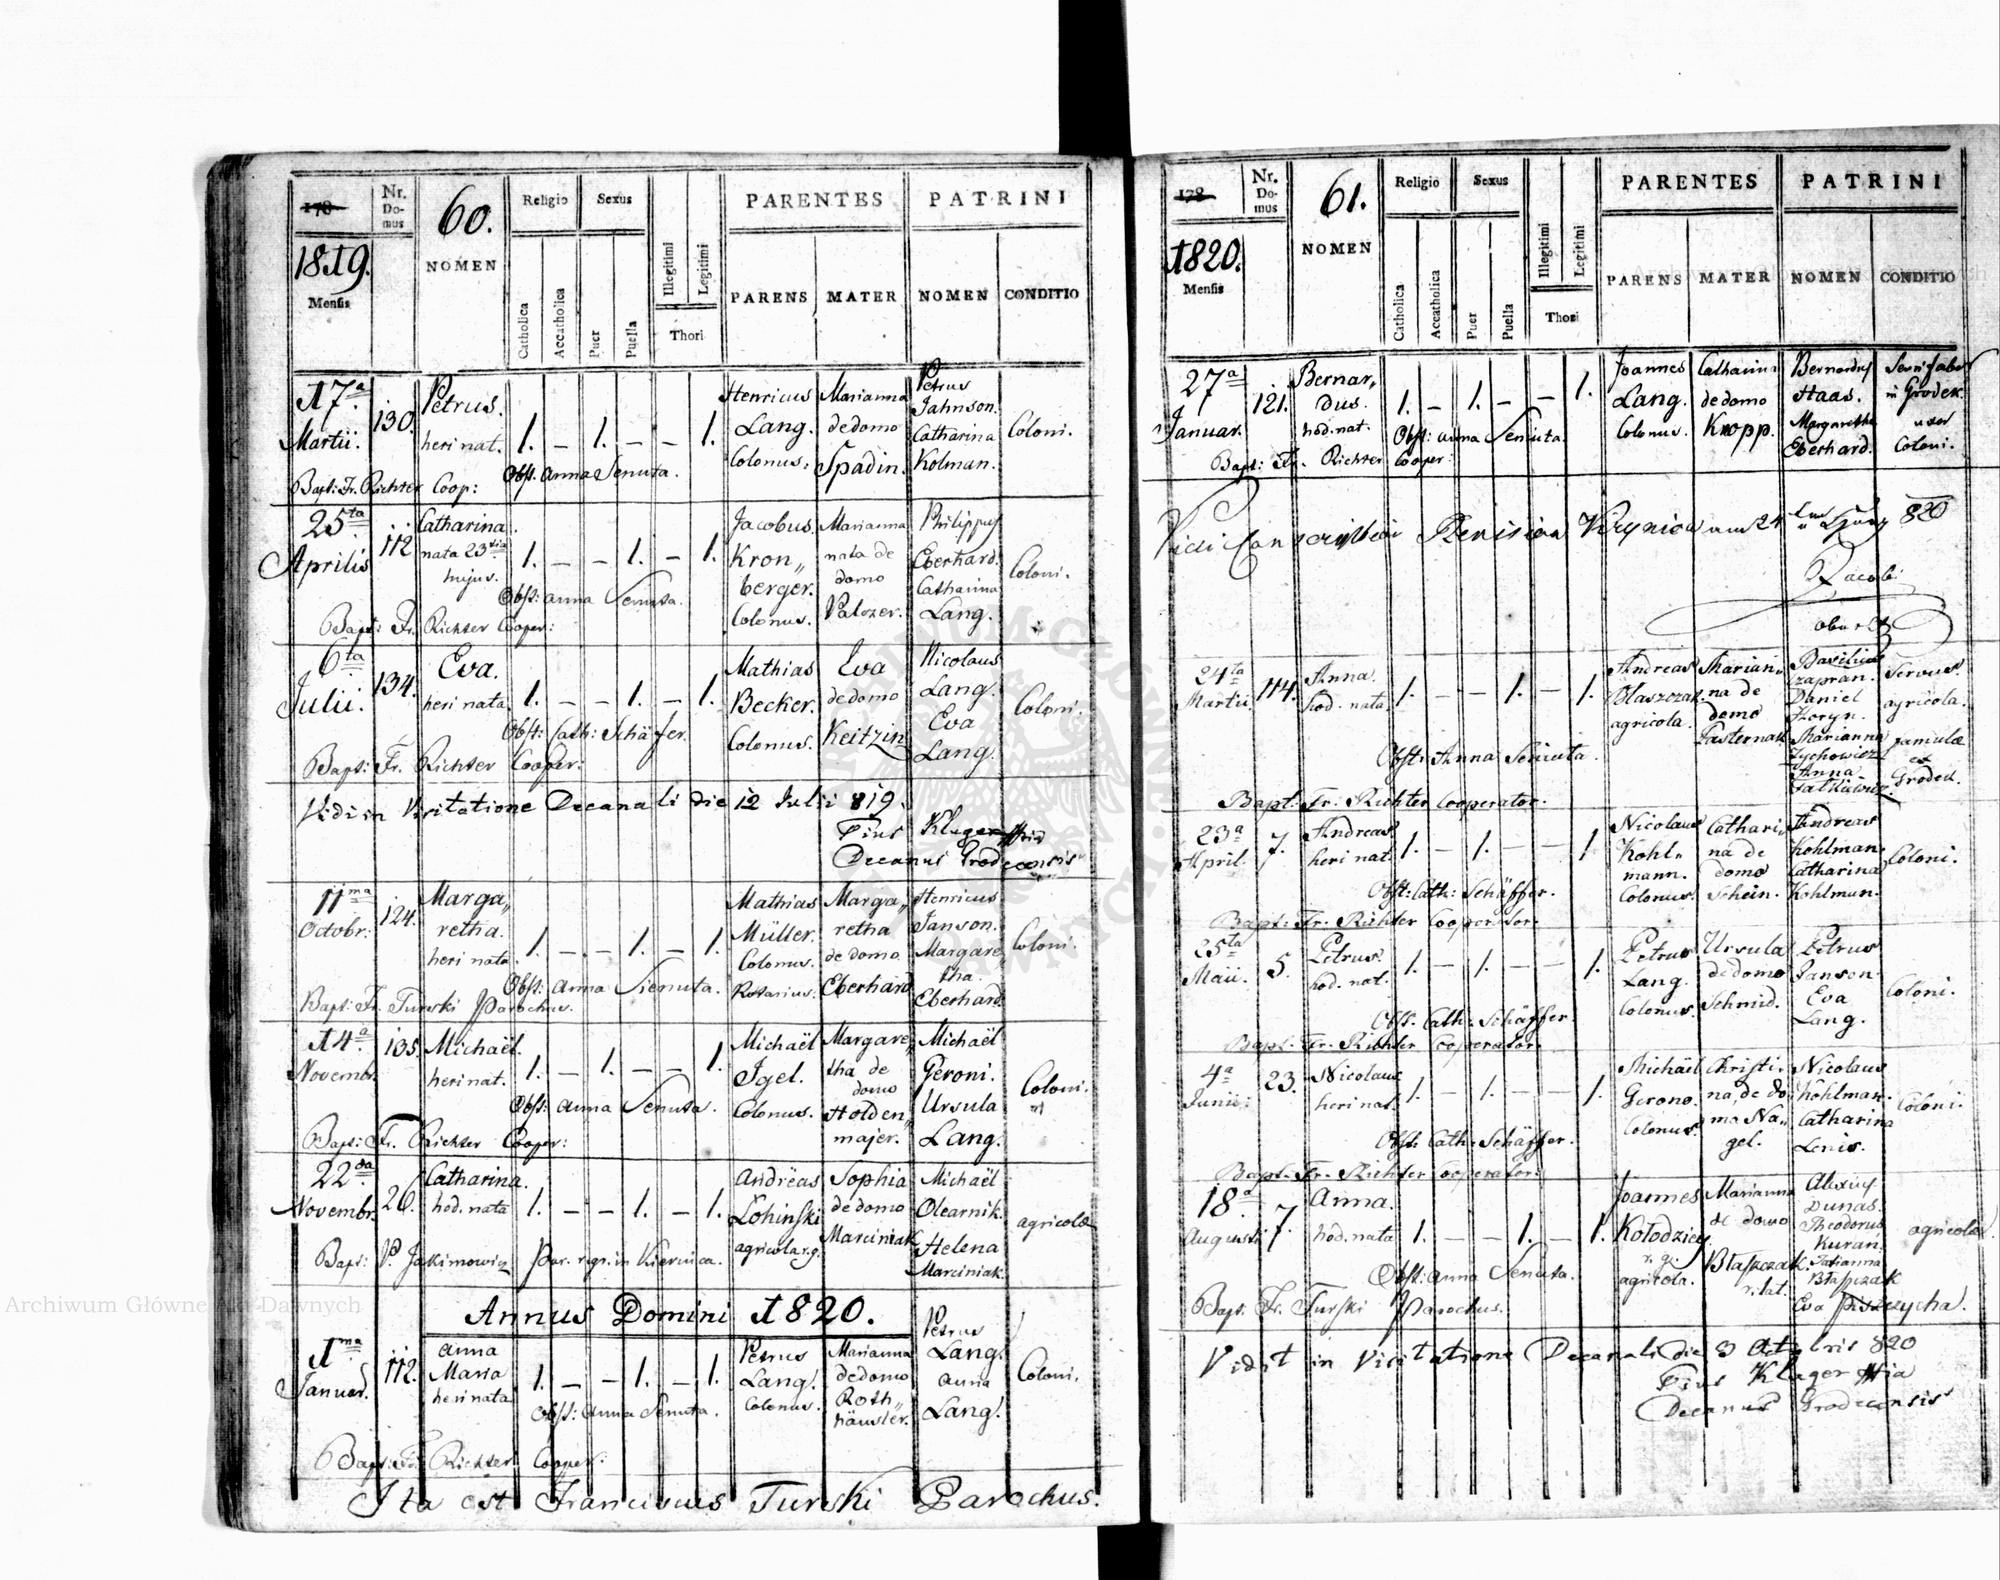 178
Nr. Domus
60.
NOMEN
Religio
Sexus
PARENTES
PATRINI
1819.
Mensis
Catholica
Accatholica
Puer
Puella
Illegitimi
Legitimi
Thori
PARENS
MATER
NOMEN
CONDITIO
17a Martii.
130.
Petrus.
heri nat.
1. – 1. – – 1.
Henricus
Lang.
Colonus.
Marianna
de domo
Spadin.
Petrus
Jahnson.
Catharina
Kolman.
Coloni.
Obst: Anna Senuta.
Bapt: Fr. Richter Coop:
25ta Aprilis
112
Catharina
nata 23tia
hujus.
1. – – 1. – 1.
Jacobus
Kron„
berger.
Colonus.
Marianna
nata de
domo
Philippus
Eberhard.
Catharina
Lang.
Coloni.
Obst: Anna Senuta.
Bapt: Fr. Richter Cooper:
6ta Julii.
134.
Eva.
heri nata.
1. – – 1. – 1.
Mathias
Becker.
Colonus.
Eva
de domo
Keitzin
Nicolaus
Lang.
Eva
Lang.
Coloni.
Obst: Cath: Schäfer.
Bapt: Fr. Richter Cooper:
Vidi in Visitatione Decanali die 12 Julii 819.
Pius Kluger
Decanus Grodecensis
11ma Octobr:
124.
Marga„
retha.
heri nata
1. – – 1. – 1.
Mathias
Müller.
Colonus.
Marga„
retha
de domo
Eberhard
Henricus
Janson.
Margare„
tha
Eberhard.
Coloni.
Obst: Anna Sienuta.
Bapt: Fr. Turski Parochus.
14a Novembr.
135.
Michaël.
heri nat.
1. – 1. – – 1.
Michaël
Igel.
Colonus.
Margare„
tha de
domo
Holden„
majer.
Michaël
Geroni.
Ursula
Lang.
Coloni.
Obst: Anna Senuta.
Bapt: Fr. Richter Cooper:
22da Novembr.
26.
Catharina.
hod. nata
1. – – 1. – 1.
Andreas
Lohinski
agricola r.g.
Sophia
de domo
Marciniak
Michaël
Olearnik.
Helena
Marciniak.
agricolæ
Bapt: P. Jakimowicz Par. r.gr. in Kiernica.
Annus Domini 1820.
1ma Januar.
112.
Anna
Maria
heri nata
1. – – 1. – 1.
Petrus
Lang.
Colonus.
Marianna
de domo
Roth„
häusler.
Petrus
Lang.
Anna
Lang.
Coloni.
Obst: Anna Senuta.
Bapt: Fr. Richter Cooper:
Ita est Franciscus Turski Parochus.
178
Nr. Domus
61.
NOMEN
Religio
Sexus
PARENTES
PATRINI
1820.
Mensis
Catholica
Accatholica
Puer
Puella
Illegitimi
Legitimi
Thori
PARENS
MATER
NOMEN
CONDITIO
27a Januar.
121.
Bernar„
dus.
hod. nat.
1. – 1. – – 1.
Joannes
Lang.
Colonus.
Catharina
de domo
Kropp.
Bernardus
Haas.
Margaretha
Eberhard.
in Grodek.
uxor
Coloni.
Obst: Anna Senuta.
Bapt: Fr. Richter Cooper:
24ta Martii
114.
Anna.
hod. nata
1. – – 1. – 1.
Andreas
Błaszczak.
agricola.
Marian„
na de
domo
Pasternak
Daniel
Marianna
Zychowicz
Anna
Servus
agricola.
famula
ex
Grodek.
Obst: Anna Senuta.
Bapt: Fr: Richter Cooperator.
23a April.
7.
Andreas
heri nat.
1. – 1. – – 1
Nicolaus
Kohl„
mann.
Colonus.
Cathari„
na de
domo
Schein.
Andreas
Kohlman.
Catharina
Kohlman.
Coloni.
Obst: Cath: Schäffer.
Bapt: Fr. Richter Cooperator.
25ta Maii.
5.
Petrus.
hod. nat.
1. – 1. – – 1.
Petrus
Lang.
Colonus.
Ursula
de domo
Schmid.
Petrus
Janson.
Eva
Lang.
Coloni.
Obst: Cath: Schäffer.
Bapt: Fr. Richter Cooperator.
4a Junii:
23.
Nicolaus
heri nat.
1. – 1. – – 1.
Michaël
Gerono.
Colonus.
Christi„
na, de do
mo Na„
gel.
Nicolaus
Kohlman.
Catharina
Lenis.
Coloni.
Obst: Cath: Schäffer.
Bapt: Fr. Richter Cooperator.
18a Augusti
7.
Anna.
hod. nata
1. – – 1. – 1.
Joannes
Kołodziey.
r. g.
agricola.
Marianna
de domo
Błaszczak.
r. lat.
Alexius
Dunas.
Theodorus
Kuran.
Tatianna
Błaszczak
Eva Piszczycha.
agricolæ.
Obst: Anna Senuta.
Bapt. Fr. Turski Parochus.
Vidit in Visitatione Decanali die 3 Octobris 820
Pius Kluger
Decanus Grodecensis
Archiwum Główne Akt Dawnych